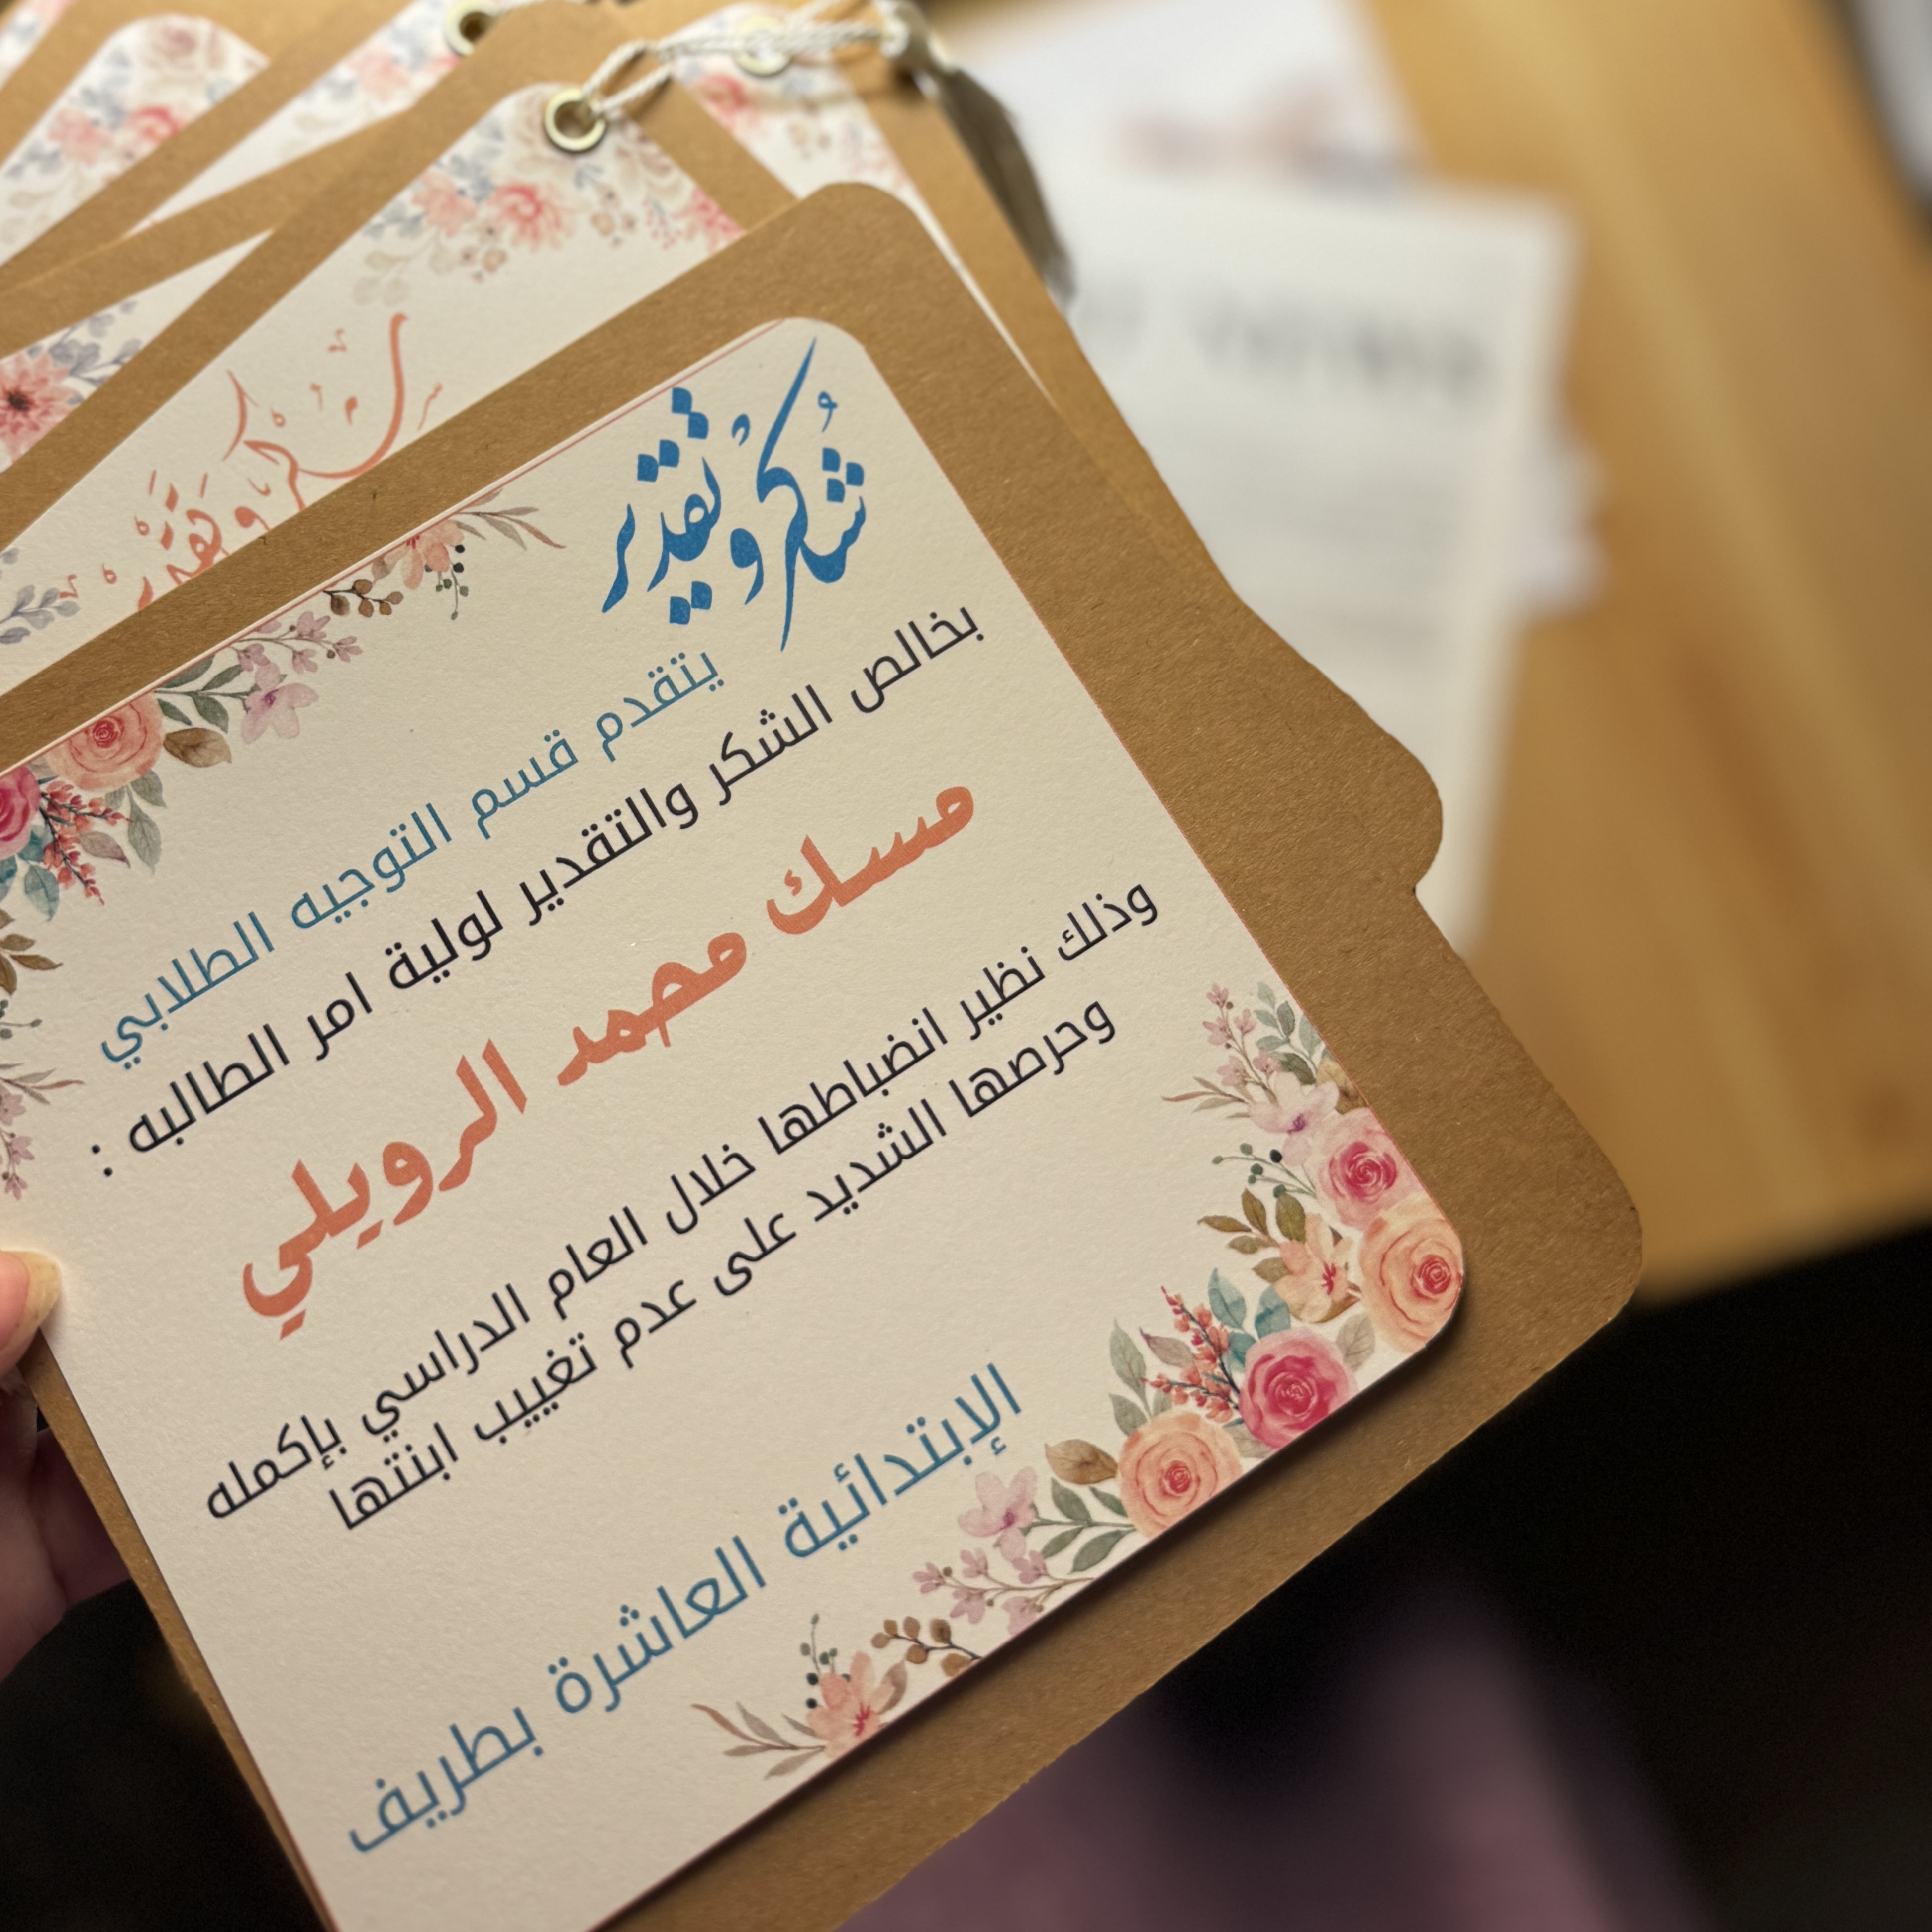 شكر وتقدير
يتقدم قسم التوجيه الطلابي
بخالص الشكر والتقدير لولية امر الطالبه :
مسك محمد الرويلي
وذلك نظير انضباطها خلال العام الدراسي بإكمله
وحرصها الشديد على عدم تغييب ابنتها
الإبتدائية العاشرة بطريف
شكر وتقدير